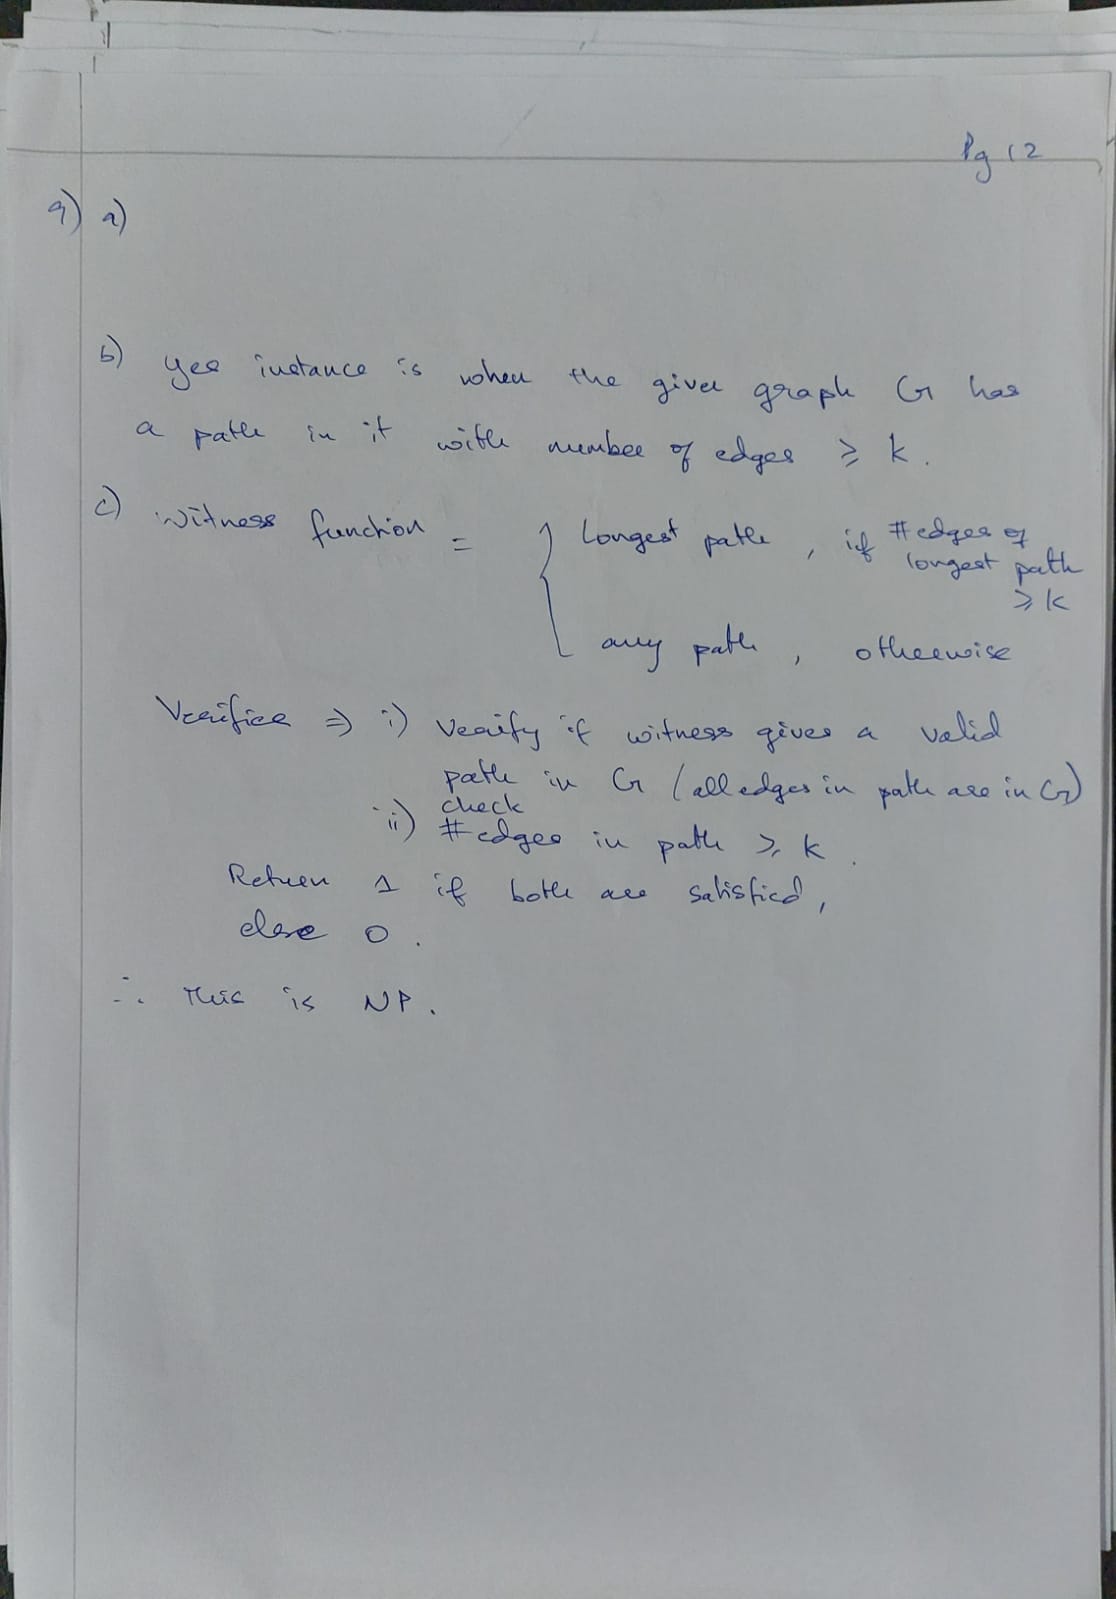 Pg 12
9) a)
b) Yes instance is when the given graph G has
a path in it with number of edges ≥ k.
c) Witness function = { Longest path, if #edges of
longest path
≥ k
any path, otherwise
Verifier ⇒ i) Verify if witness gives a valid
path in G (all edges in path are in G)
check
ii) #edges in path ≥ k.
Return 1 if both are satisfied,
else 0.
∴ This is NP.